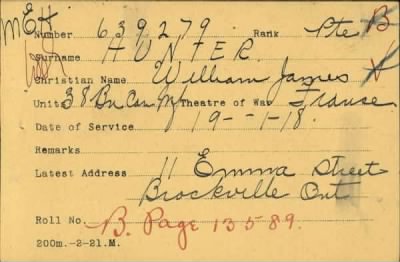 MEH.
Number 639279 Rank Pte B
Surname HUNTER.
Christian Name William James
Units 38 Bn Can Inf Theatre of War France
Date of Service 19-1-18.
Remarks
Latest Address 11 Emma Street
Brockville Ont
Roll No. B. Page 13589.
200m.-2-21.M.